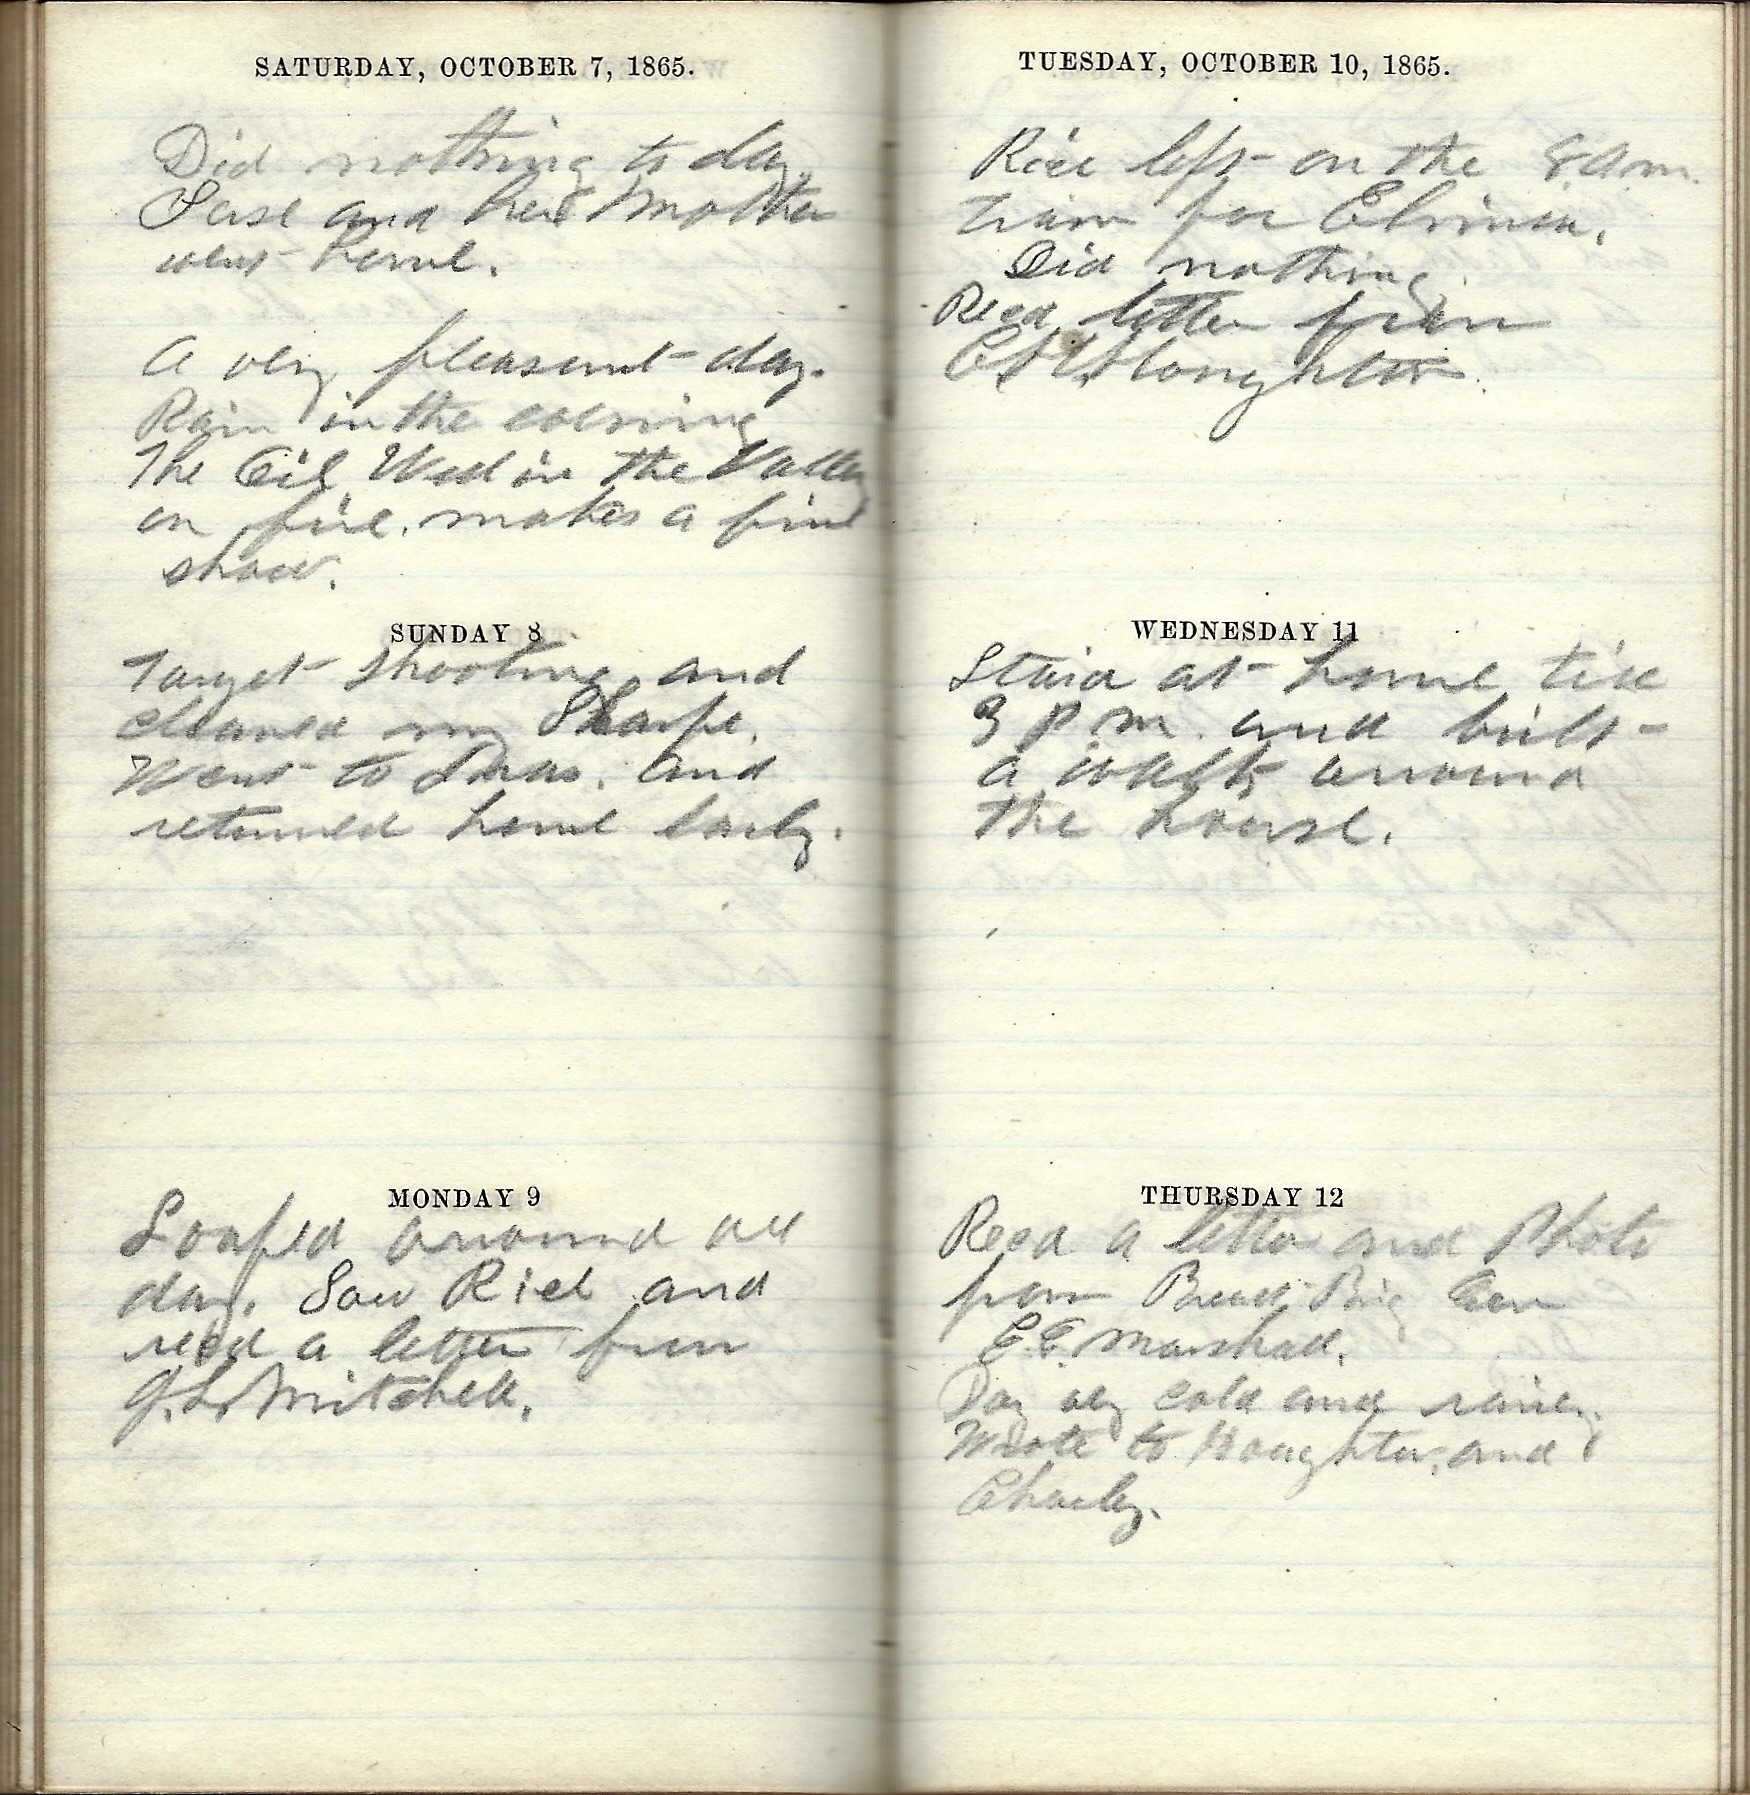 SATURDAY, OCTOBER 7, 1865.
Did nothing to day.
and her Mother
went home.
A very pleasant day.
Rain in the evening
The Oil Well in the Valley
on fire. makes a fine
show.
SUNDAY 8
Target shooting and
cleaned my Sharps.
Went to and
returned home early.
MONDAY 9
Loafed around all
day. Saw Rice and
recd a letter from
J. L. Mitchell.
TUESDAY, OCTOBER 10, 1865.
Rice left on the 8 am.
train for Elmira.
Did nothing
Recd letter from
Houghton.
WEDNESDAY 11
Staid at home till
3 p m. and built
a walk around
the house.
THURSDAY 12
Recd a letter and Photo
from Brevt Brig Gen
E. G. Marshall.
Day very cold and rainy.
Wrote to Houghton, and
Charley.